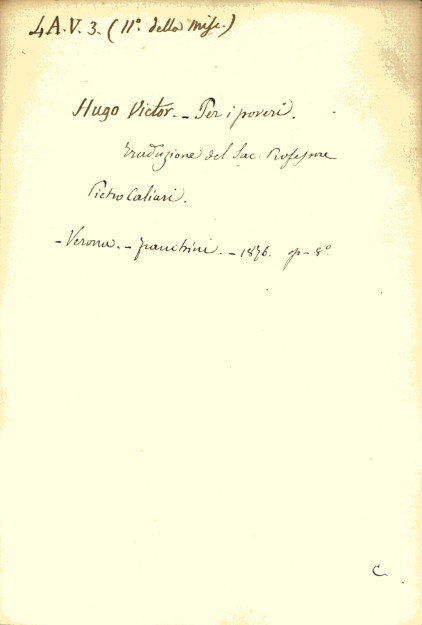 4A.V.3. (11º. della Misc.)
Hugo Victor. - Per i poveri.
Traduzione del Sac. Professore
Pietro Caliari.
- Verona. - Franchini. - 1876. op - 8º.
C